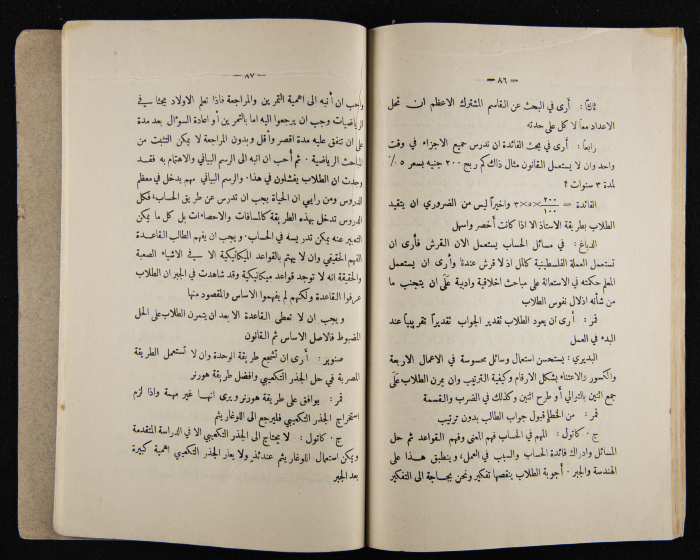 — ٨٦ —
ثالثاً : أرى في البحث عن القاسم المشترك الاعظم ان تحل
الاعداد معاً لا كل على حدته
رابعاً : أرى في بحث الفائدة ان ندرس جميع الاجزاء في وقت
واحد وان لا يستعمل القانون مثال ذلك كم ربح ٢٠٠ جنيه بسعر ٥ ٪
لمدة ٣ سنوات ؟
الفائدة = ٢٠٠/١٠٠ ×٥×٣ واخيراً ليس من الضروري ان يتقيد
الطلاب بطريقة الاستاذ الا اذا كانت أخصر واسهل
الدباغ : في مسائل الحساب يستعمل الان القرش فأرى ان
تستعمل العملة الفلسطينية كالمل اذ لا قرش عندنا وأرى ان يستعمل
المعلم حكمته في الاستعانة على مباحث اخلاقية وادبية على ان يتجنب ما
من شأنه اذلال نفوس الطلاب
قمر : أرى ان يعود الطلاب تقدير الجواب تقديراً تقريبياً عند
البدء في العمل
البديري : يستحسن استعمال وسائل محسوسة في الاعمال الاربعة
والكسور والاعتناء بشكل الارقام وكيفية الترتيب وان يمرن الطلاب على
جمع اثنين بالتوالي أو طرح اثنين وكذلك في الضرب والقسمة
قمر : من الخطأ قبول جواب الطالب بدون ترتيب
ج . كاتول : المهم في الحساب فهم المعنى وفهم القواعد ثم حل
المسائل وادراك فائدة الحساب والسبب في العمل ، وينطبق هذا على
الهندسة والجبر . أجوبة الطلاب ينقصها تفكير ونحن بحاجة الى التفكير
— ٨٧ —
واحب ان أنبه الى اهمية التمرين والمراجعة فاذا تعلم الاولاد بحثا في
الرياضيات وجب ان يرجعوا اليه اما بالتمرين أو اعادة السؤال بعد مدة
على ان تتفق عليه مدة اقصر وأقل وبدون المراجعة لا يمكن التثبت من
المباحث الرياضية . ثم أحب ان انبه الى الرسم البياني والاهتمام به فقد
وجدت ان الطلاب يفشلون في هذا . والرسم البياني مهم يدخل في معظم
الدروس ومن رأيي ان الحياة يجب ان تدرس عن طريق الحساب ، فكل
الدروس تدخل بهذه الطريقة كالمسافات والاحصاءات بل كل ما يمكن
التعبير عنه يمكن تدريسه في الحساب . ويجب ان يفهم الطالب القاعدة
الفهم الحقيقي وان لا يهتم بالقواعد الميكانيكية الا في الاشياء الصعبة
والحقيقة انه لا توجد قواعد ميكانيكية وقد شاهدت في الجبر ان الطلاب
عرفوا القاعدة ولكنهم لم يفهموا الاساس والمقصود منها
ويجب ان لا تعطى القاعدة الا بعد ان يتمرن الطلاب على الحل
المضبوط فالاصل الاساس ثم القانون
صنوبر : أرى ان تشجع طريقة الوحدة وان لا تستعمل الطريقة
المصرية في حل الجذر التكعيبي وافضل طريقة هورنر
قمر : يوافق على طريقة هورنر ويرى انها غير مهمة واذا لزم
استخراج الجذر التكعيبي فليرجع الى اللوغاريثم
ج . كاتول : لا يحتاج الى الجذر التكعيبي الا في الدراسة المتقدمة
ويمكن استعمال اللوغاريثم عندئذ ولا يعار الجذر التكعيبي اهمية كبيرة
بعد الجبر